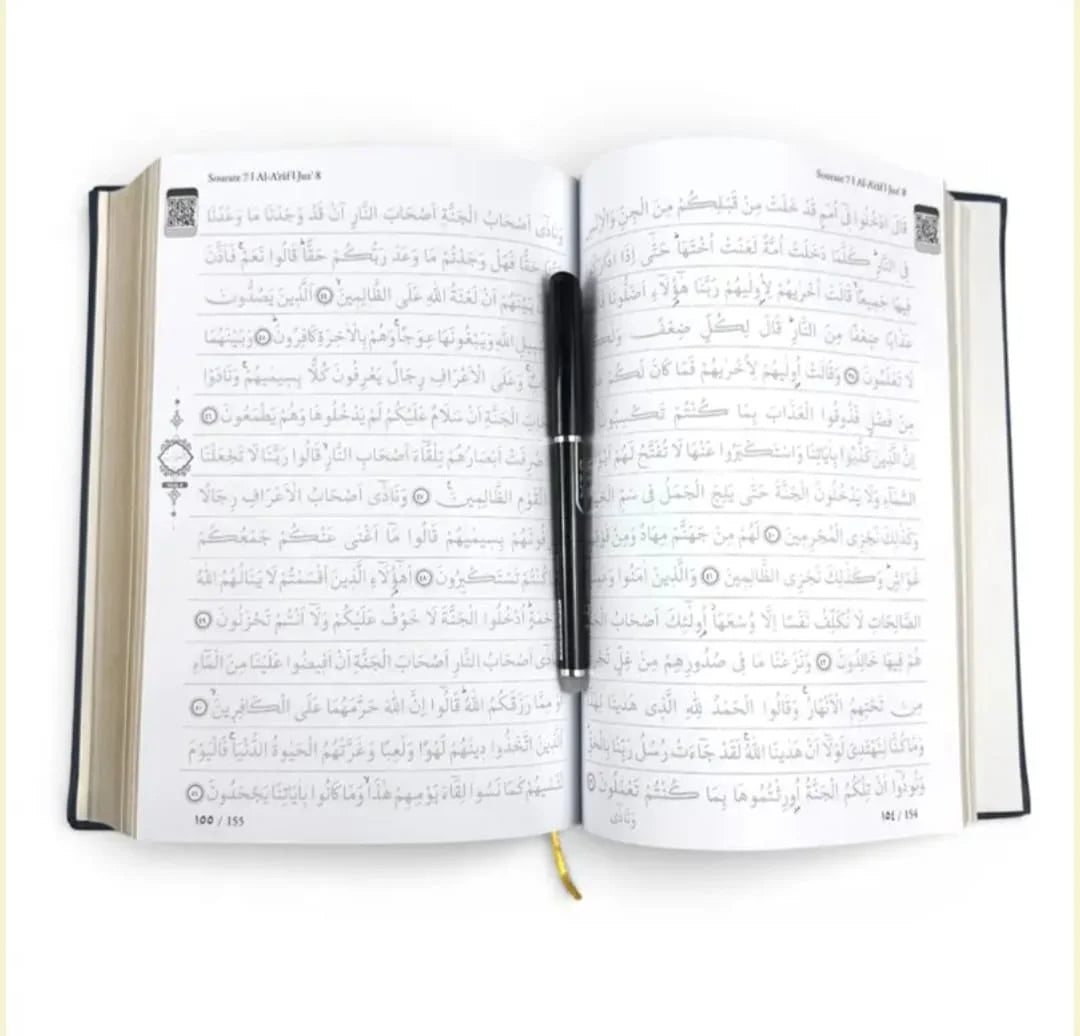 Sourate 7 | Al-A'râf | Juz' 8
قَالَ ادْخُلُوا فٓى اُمَمٍ قَدْ خَلَتْ مِنْ قَبْلِكُمْ مِنَ الْجِنِّ وَالْاِنْسِ
فِى النَّارِ كُلَّمَا دَخَلَتْ اُمَّةٌ لَعَنَتْ اُخْتَهَا حَتّٰٓى اِذَا
فٖيهَا جَمٖيعًا قَالَتْ اُخْرٰيهُمْ لِاُولٰيهُمْ رَبَّنَا هٰٓؤُلَٓاءِ اَضَلُّونَا
عَذَابًا ضِعْفًا مِنَ النَّارِ قَالَ لِكُلٍّ ضِعْفٌ
لَا تَعْلَمُونَ ٣٨ وَقَالَتْ اُولٰيهُمْ لِاُخْرٰيهُمْ فَمَا كَانَ لَكُمْ
مِنْ فَضْلٍ فَذُوقُوا الْعَذَابَ بِمَا كُنْتُمْ تَكْسِبُونَ
اِنَّ الَّذٖينَ كَذَّبُوا بِاٰيَاتِنَا وَاسْتَكْبَرُوا عَنْهَا لَا تُفَتَّحُ لَهُمْ
السَّمَٓاءِ وَلَا يَدْخُلُونَ الْجَنَّةَ حَتّٰى يَلِجَ الْجَمَلُ فٖى سَمِّ
وَكَذٰلِكَ نَجْزِى الْمُجْرِمٖينَ ٤٠ لَهُمْ مِنْ جَهَنَّمَ مِهَادٌ وَمِنْ
غَوَاشٍ وَكَذٰلِكَ نَجْزِى الظَّالِمٖينَ ٤١ وَالَّذٖينَ اٰمَنُوا
الصَّالِحَاتِ لَا نُكَلِّفُ نَفْسًا اِلَّا وُسْعَهَا اُولٰٓئِكَ اَصْحَابُ
هُمْ فٖيهَا خَالِدُونَ ٤٢ وَنَزَعْنَا مَا فٖى صُدُورِهِمْ مِنْ غِلٍّ
مِنْ تَحْتِهِمُ الْاَنْهَارُ وَقَالُوا الْحَمْدُ لِلّٰهِ الَّذٖى هَدٰينَا لِهٰذَا
وَمَا كُنَّا لِنَهْتَدِىَ لَوْلَٓا اَنْ هَدٰينَا اللّٰهُ لَقَدْ جَٓاءَتْ رُسُلُ رَبِّنَا بِالْحَقِّ
وَنُودُٓوا اَنْ تِلْكُمُ الْجَنَّةُ اُورِثْتُمُوهَا بِمَا كُنْتُمْ تَعْمَلُونَ
وَنَادٰٓى
١٥٤ / 154
Sourate 7 | Al-A'râf | Juz' 8
وَنَادٰٓى اَصْحَابُ الْجَنَّةِ اَصْحَابَ النَّارِ اَنْ قَدْ وَجَدْنَا مَا وَعَدَنَا
حَقًّا فَهَلْ وَجَدْتُمْ مَا وَعَدَ رَبُّكُمْ حَقًّا قَالُوا نَعَمْ فَاَذَّنَ
بَيْنَهُمْ اَنْ لَعْنَةُ اللّٰهِ عَلَى الظَّالِمٖينَ ٤٤ اَلَّذٖينَ يَصُدُّونَ
سَبٖيلِ اللّٰهِ وَيَبْغُونَهَا عِوَجًا وَهُمْ بِالْاٰخِرَةِ كَافِرُونَ ٤٥ وَبَيْنَهُمَا
وَعَلَى الْاَعْرَافِ رِجَالٌ يَعْرِفُونَ كُلًّا بِسٖيمٰيهُمْ وَنَادَوْا
الْجَنَّةِ اَنْ سَلَامٌ عَلَيْكُمْ لَمْ يَدْخُلُوهَا وَهُمْ يَطْمَعُونَ ٤٦
صُرِفَتْ اَبْصَارُهُمْ تِلْقَٓاءَ اَصْحَابِ النَّارِ قَالُوا رَبَّنَا لَا تَجْعَلْنَا
الْقَوْمِ الظَّالِمٖينَ ٤٧ وَنَادٰٓى اَصْحَابُ الْاَعْرَافِ رِجَالًا
بِسٖيمٰيهُمْ قَالُوا مَٓا اَغْنٰى عَنْكُمْ جَمْعُكُمْ
كُنْتُمْ تَسْتَكْبِرُونَ ٤٨ اَهٰٓؤُلَٓاءِ الَّذٖينَ اَقْسَمْتُمْ لَا يَنَالُهُمُ اللّٰهُ
اُدْخُلُوا الْجَنَّةَ لَا خَوْفٌ عَلَيْكُمْ وَلَٓا اَنْتُمْ تَحْزَنُونَ ٤٩
اَصْحَابُ النَّارِ اَصْحَابَ الْجَنَّةِ اَنْ اَفٖيضُوا عَلَيْنَا مِنَ الْمَٓاءِ
اَوْ مِمَّا رَزَقَكُمُ اللّٰهُ قَالُٓوا اِنَّ اللّٰهَ حَرَّمَهُمَا عَلَى الْكَافِرٖينَ ٥٠
الَّذٖينَ اتَّخَذُوا دٖينَهُمْ لَهْوًا وَلَعِبًا وَغَرَّتْهُمُ الْحَيٰوةُ الدُّنْيَا فَالْيَوْمَ
كَمَا نَسُوا لِقَٓاءَ يَوْمِهِمْ هٰذَا وَمَا كَانُوا بِاٰيَاتِنَا يَجْحَدُونَ ٥١
١٥٥ / 155